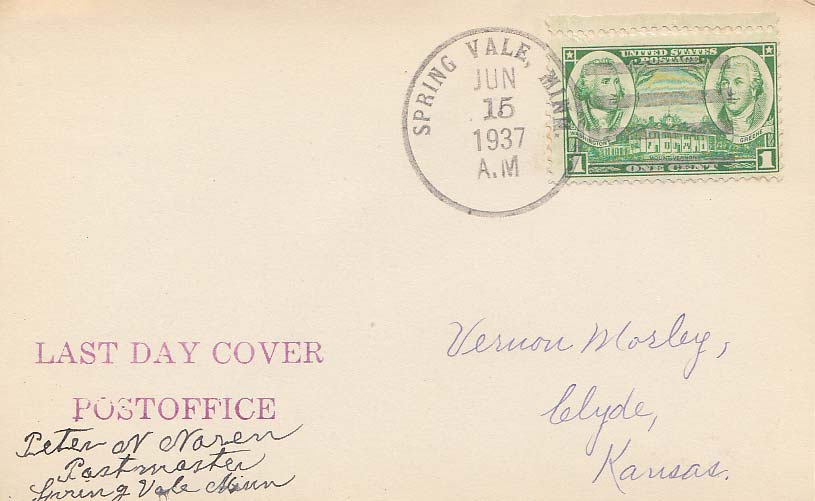 SPRING VALE, MINN.
JUN
15
1937
A.M
UNITED STATES
POSTAGE
WASHINGTON
GREENE
MOUNT VERNON
1 ONE CENT 1
LAST DAY COVER
POSTOFFICE
Peter N Noren
Postmaster
Spring Vale Minn
Vernon Morley,
Clyde,
Kansas.